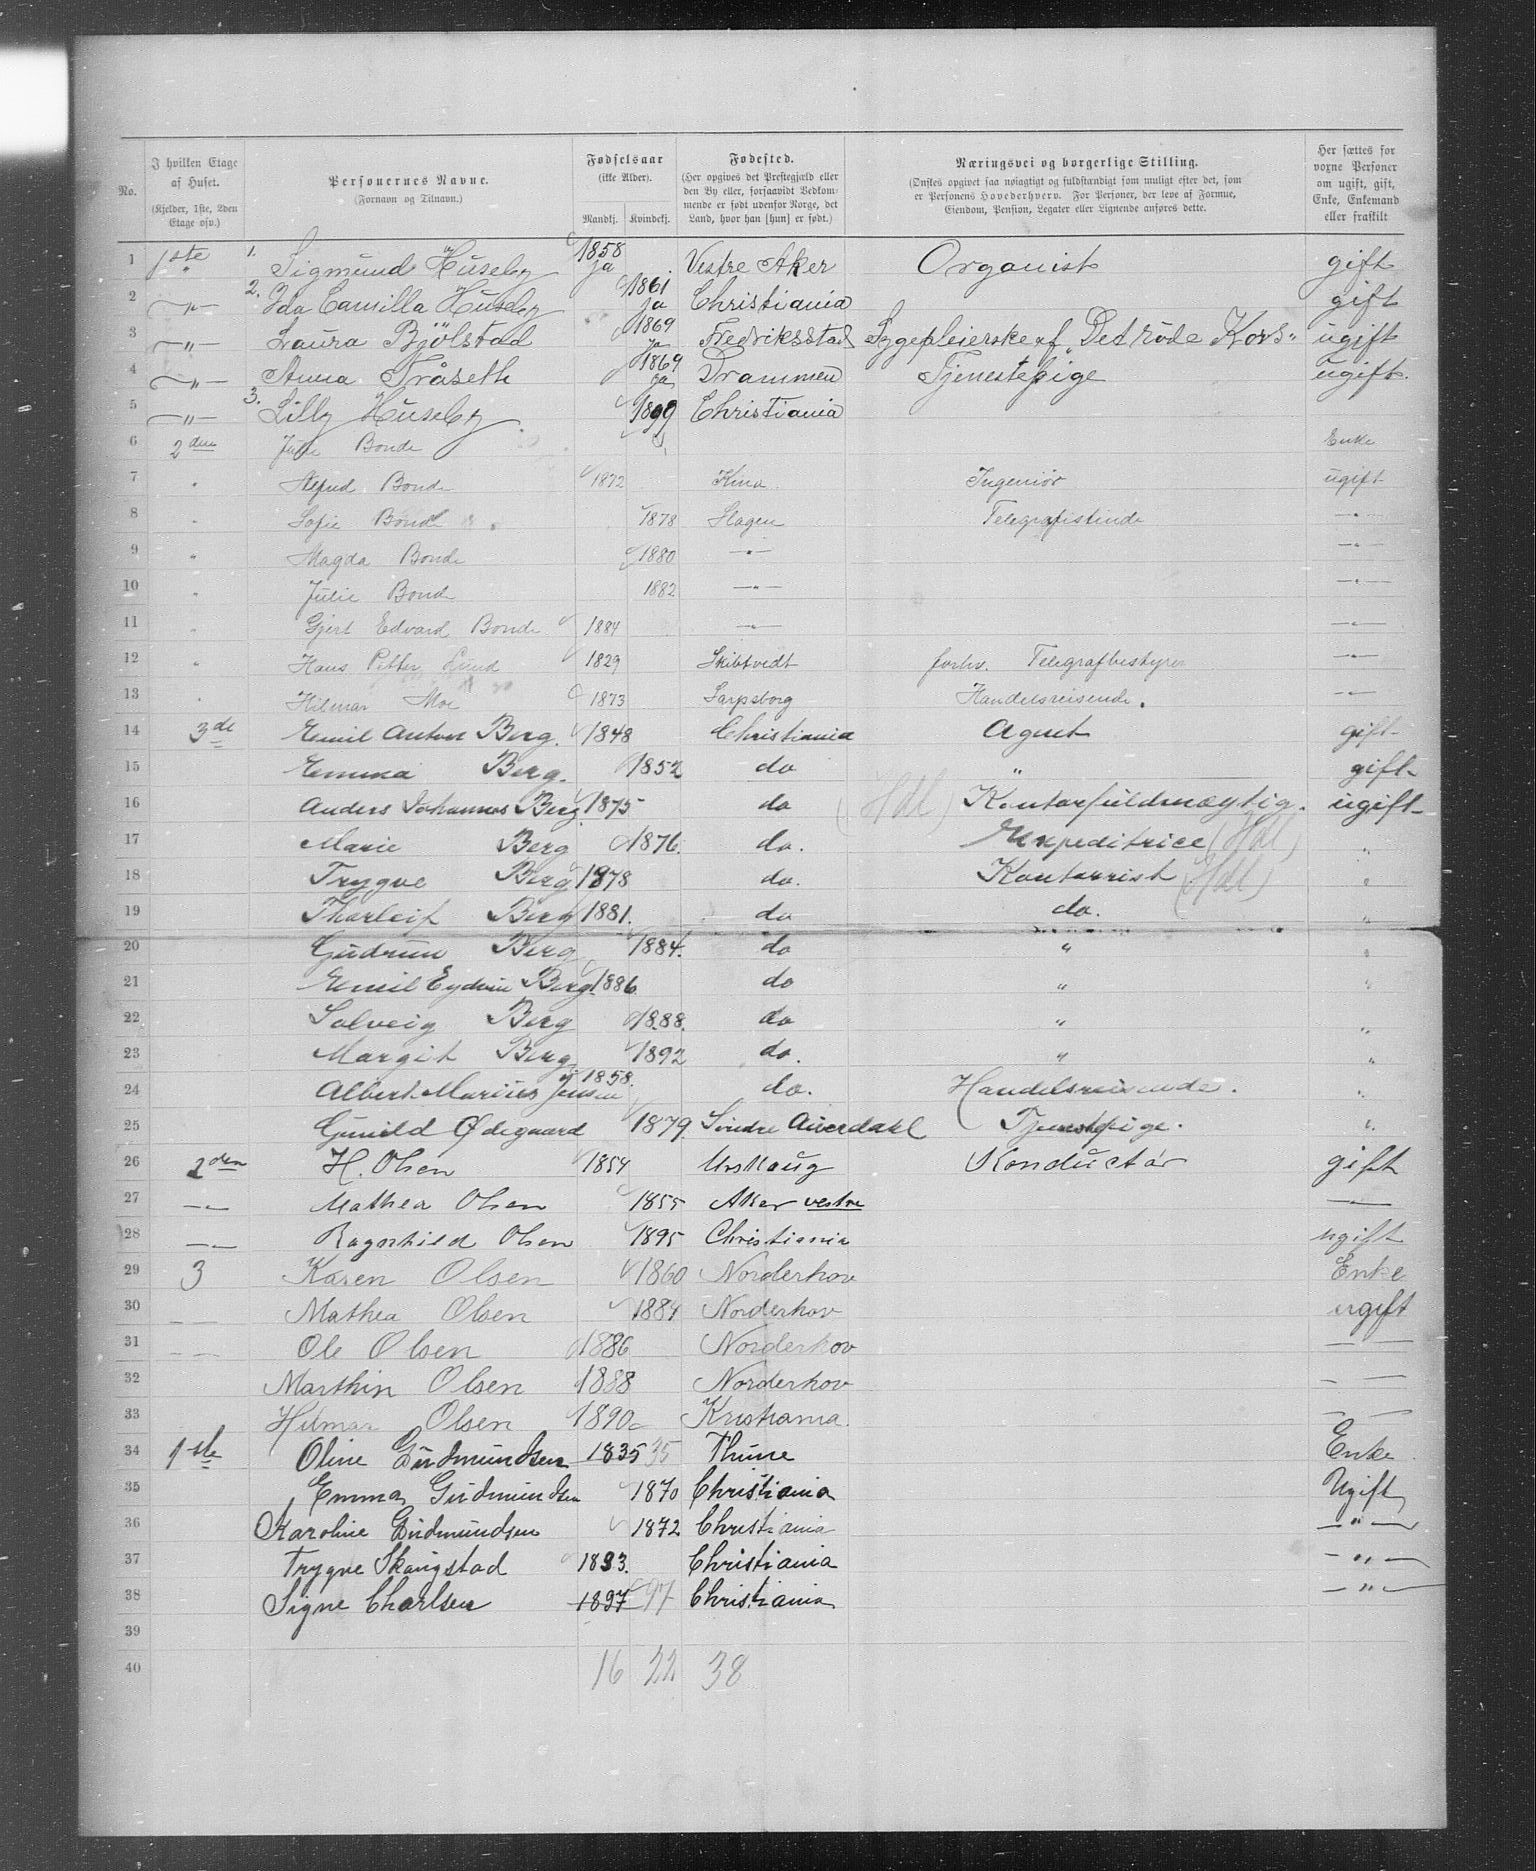 No.
I hvilken Etage af Huset.
(Kjelder, 1ste, 2den Etage osv.)
Personernes Navne.
(Fornavn og Tilnavn).
Fødselsaar
(ikke Alder).
Mandkj. Kvindekj.
Fødested.
(Her opgives det Prestegjæld eller den By eller, forsaavidt Vedkommende er født udenfor Norge, det Land, hvor han [hun] er født.)
Næringsvei og borgerlige Stilling.
(Ønskes opgivet saa nøiagtigt og fuldstændigt som muligt efter det, som er Personens Hovederhverv. For Personer, der leve af Formue, Eiendom, Pension, Legater eller Lignende anføres dette.
Her sættes for voxne Personer om ugift, gift, Enke, Enkemand eller fraskilt
1 1ste 1. Sigmund Huseby 1858 ja Vestre Aker Organist gift
2 —„— 2. Ida Camilla Huseby 1861 ja Christiania gift
3 —„— Laura Bjölstad 1869 ja Fredriksstad Sygepleierske af „Det röde Kors" ugift
4 —„— Anna Tråseth 1869 ja Drammen Tjenestepige ugift.
5 —„— 3. Lilly Huseby 1899 Christiania
6 2den Julie Bonde Enke
7 " Alfred Bonde 1872 Kina Ingeniör ugift
8 " Sofie Bonde 1878 Slagen Telegrafistinde —"—
9 " Magda Bonde 1880 —"— —"—
10 " Julie Bonde 1882 —"— —"—
11 " Gjert Edvard Bonde 1884 —"— —"—
12 " Hans Petter Lund 1829 Skibtvedt forhv. Telegrafbestyrer —"—
13 " Hilmar Moe 1873 Sarpsborg Handelsreisende. —"—
14 3de Emil Anton Berg. 1848 Christiania Agent gift-
15 Emma Berg. 1852 do " gift-
16 Anders Johannes Berg 1875 do (Hdl) Kontorfuldmægtig. ugift-
17 Marie Berg 1876. do. Expeditrice (Hdl) "
18 Trygve Berg 1878 do. Kontorrist (Hdl) "
19 Thorleif Berg 1881. do do. "
20 Gudrun Berg 1884. do " "
21 Emil Eydvin Berg. 1886. do " "
22 Solveig Berg 1888. do " "
23 Margit Berg 1892 do. " "
24 Albert Marius Jensen 1858. do. Handelsreisende. "
25 Gunild Ødegaard 1879 Söndre Auerdahl Tjenestpige. "
26 2den H. Olsen 1854 Urskaug Konductör gift
27 —„— Mathea Olsen 1855 Aker vestre —„—
28 —„— Ragnhild Olsen 1895 Christiania ugift
29 3 Karen Olsen 1860 Norderhov Enke
30 — — Mathea Olsen 1884 Norderhov ugift
31 — — Ole Olsen 1886 Norderhov — —
32 Marthin Olsen 1888 Norderhov — —
33 Hilmar Olsen 1890 Kristiania. — —
34 1ste Oline Gudmundsen 1835 35 Thune Enke
35 Emma Gudmundsen 1870 Christiania Ugift
36 Karoline Gudmundsen 1872 Christiania —"—
37 Trygve Skaugstad 1893. Christiania —"—
38 Signe Charlsen 1897 97 Christiania —"—
39
40 16 22 38